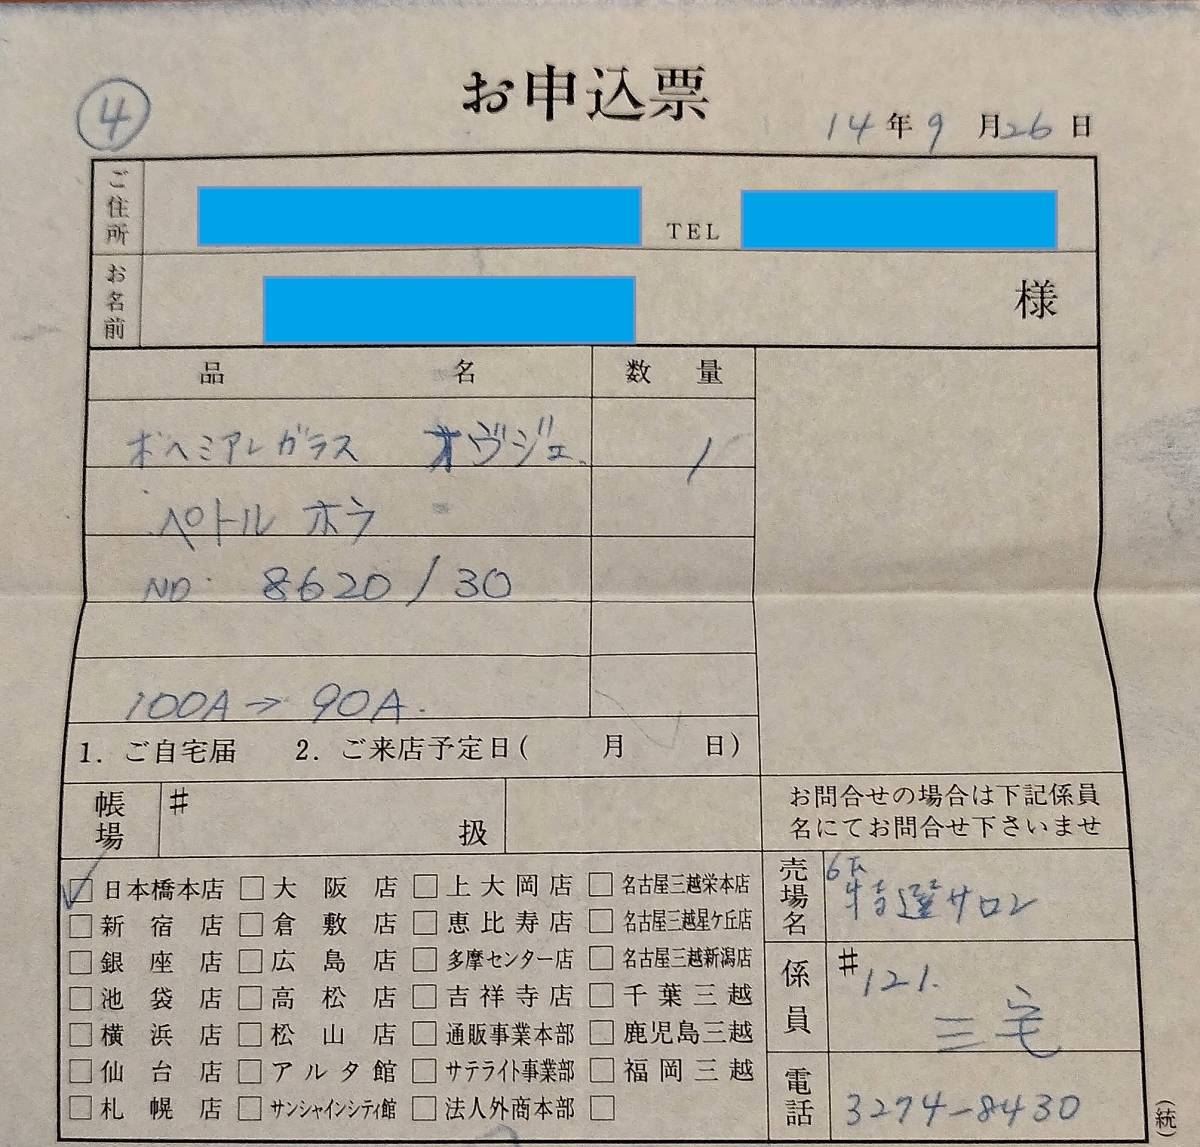 ④
お申込票
14年9月26日
ご住所
TEL
お名前
様
品名 数量
ボヘミアンガラス オヴジェ 1
ペトル ホラ
NO. 8620/30
100A→90A.
1. ご自宅届 2. ご来店予定日( 月 日)
帳場 # 扱
お問合せの場合は下記係員
名にてお問合せ下さいませ
□日本橋本店 □大阪店 □上大岡店 □名古屋三越栄本店
□新宿店 □倉敷店 □恵比寿店 □名古屋三越星ケ丘店
□銀座店 □広島店 □多摩センター店 □名古屋三越新潟店
□池袋店 □高松店 □吉祥寺店 □千葉三越
□横浜店 □松山店 □通販事業本部 □鹿児島三越
□仙台店 □アルタ館 □サテライト事業部 □福岡三越
□札幌店 □サンシャインシティ館 □法人外商本部 □
売場名 6F 特選サロン
係員 #121. 三宅
電話 3274-8430
(統)